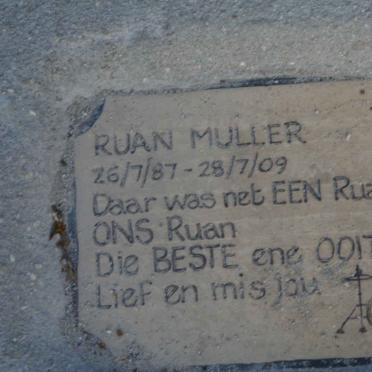 RUAN MULLER
26/7/87 - 28/7/09
Daar was net EEN Rua
ONS Ruan
Die BESTE ene OOIT
Lief en mis jou